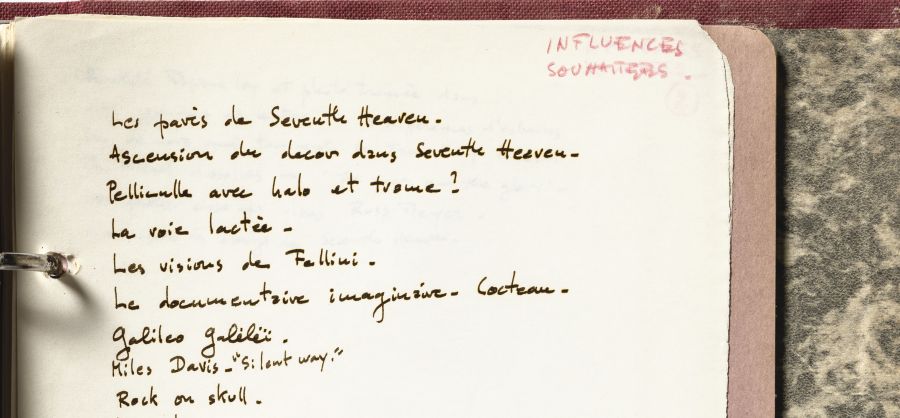 INFLUENCES
SOUHAITEES.
2
Les pavés de Seventh Heaven.
Ascension du decor dans Seventh Heaven.
Pellicule avec halo et trame ?
La voie lactée.
Les visions de Fellini.
Le documentaire imaginaire. Cocteau.
Galileo Galileï.
Miles Davis. "Silent way."
Rock on skull.